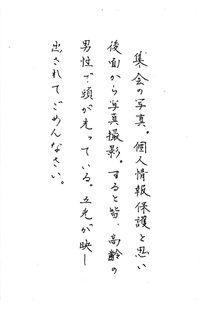 集会の写真。個人情報保護と思い
後面から写真撮影。すると皆、高齢の
男性で頭が光っている。立光が映し
出されてごめんなさい。